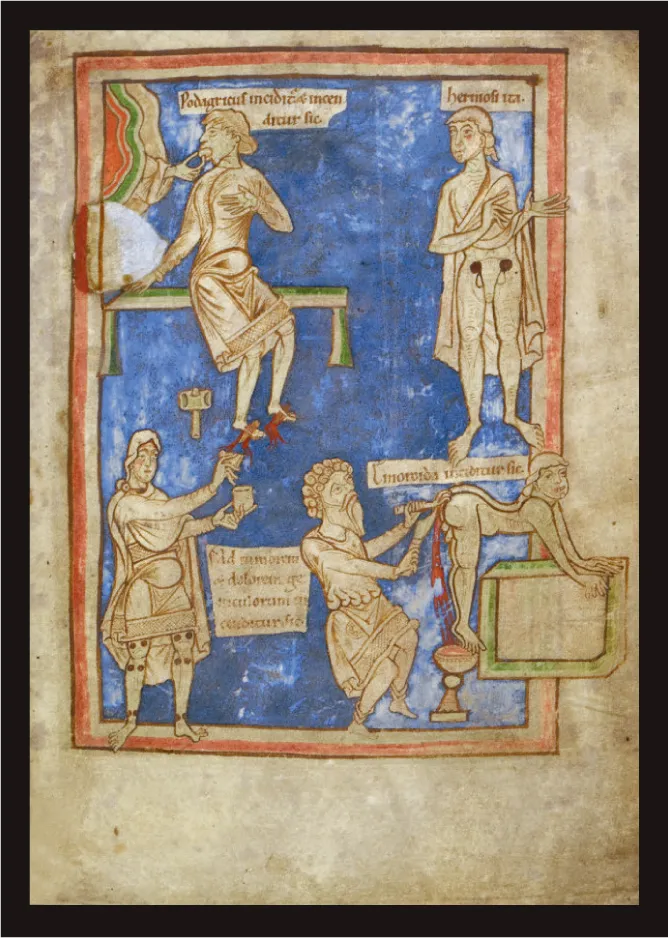 Podagricus inciditᷓ & incen
ditur sic.
hermosi ita.
Emoroida inciditur sic.
Ad tumorem
& dolorem ge
niculorum in
cenditur sic.